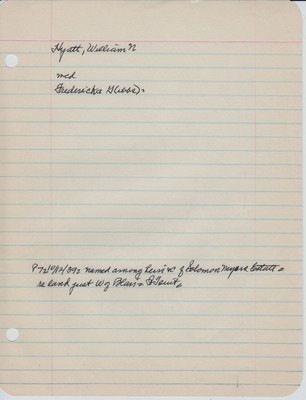 Hyatt, William N
md
Frederickа G(ibbs)
P 72 10/12/092 named among heirs of Solomon Myers Estate
re land just W of Blairs